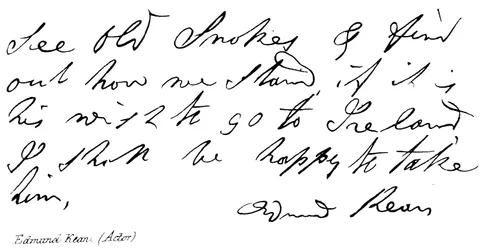 See Old Snokes & find
out how we stand, if it is
his wish to go to Ireland
I shall be happy to take
him,
Edmund Kean
Edmund Kean (Actor)